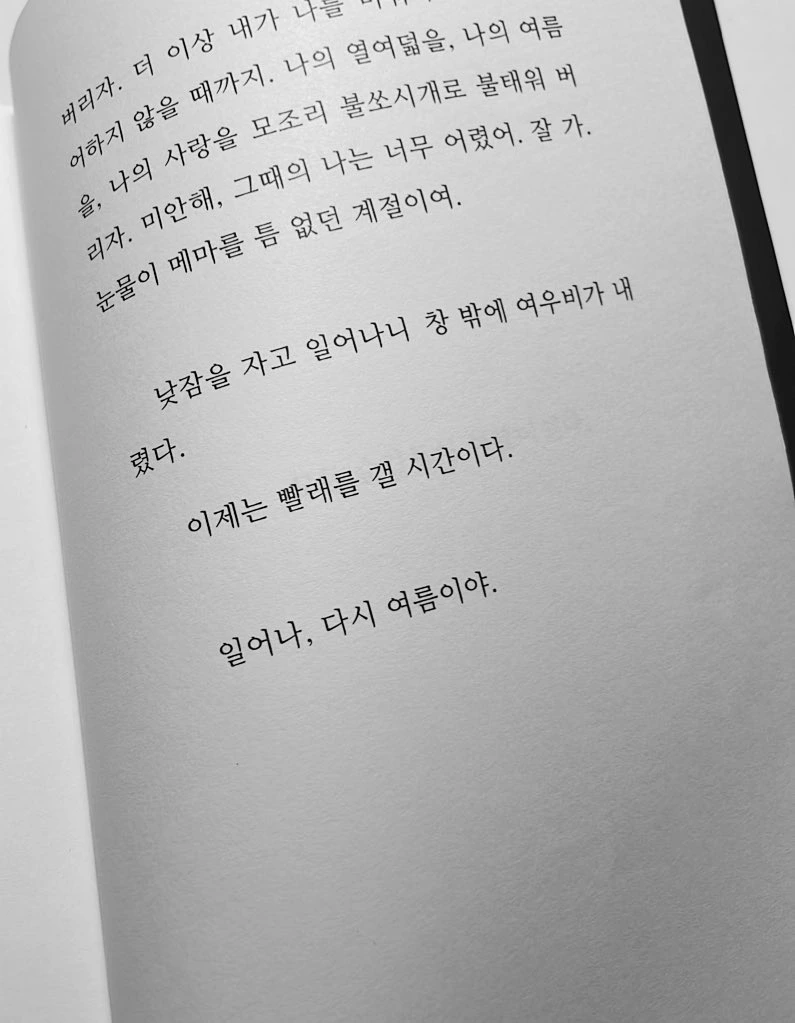 버리자. 더 이상 내가 나를
어하지 않을 때까지. 나의 열여덟을, 나의 여름
을, 나의 사랑을 모조리 불쏘시개로 불태워 버
리자. 미안해, 그때의 나는 너무 어렸어. 잘 가.
눈물이 메마를 틈 없던 계절이여.
낮잠을 자고 일어나니 창 밖에 여우비가 내
렸다.
이제는 빨래를 갤 시간이다.
일어나, 다시 여름이야.